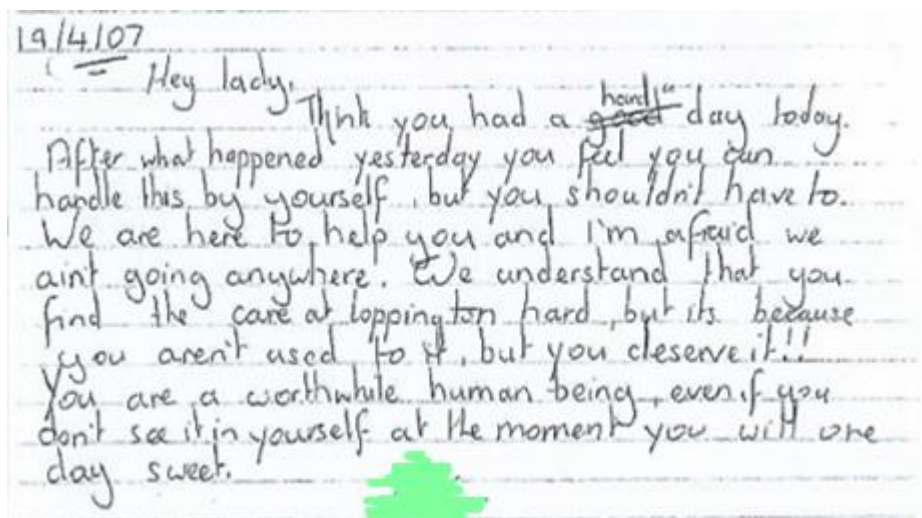 19/4/07
Hey lady,
Think you had a good hard day today.
After what happened yesterday you feel you can
handle this by yourself, but you shouldn't have to.
We are here to help you and I'm afraid we
aint going anywhere. We understand that you
find the care at loppington hard, but its because
you aren't used to it, but you deserve it!!
You are a worthwhile human being, even if you
don't see it in yourself at the moment you will one
day sweet.